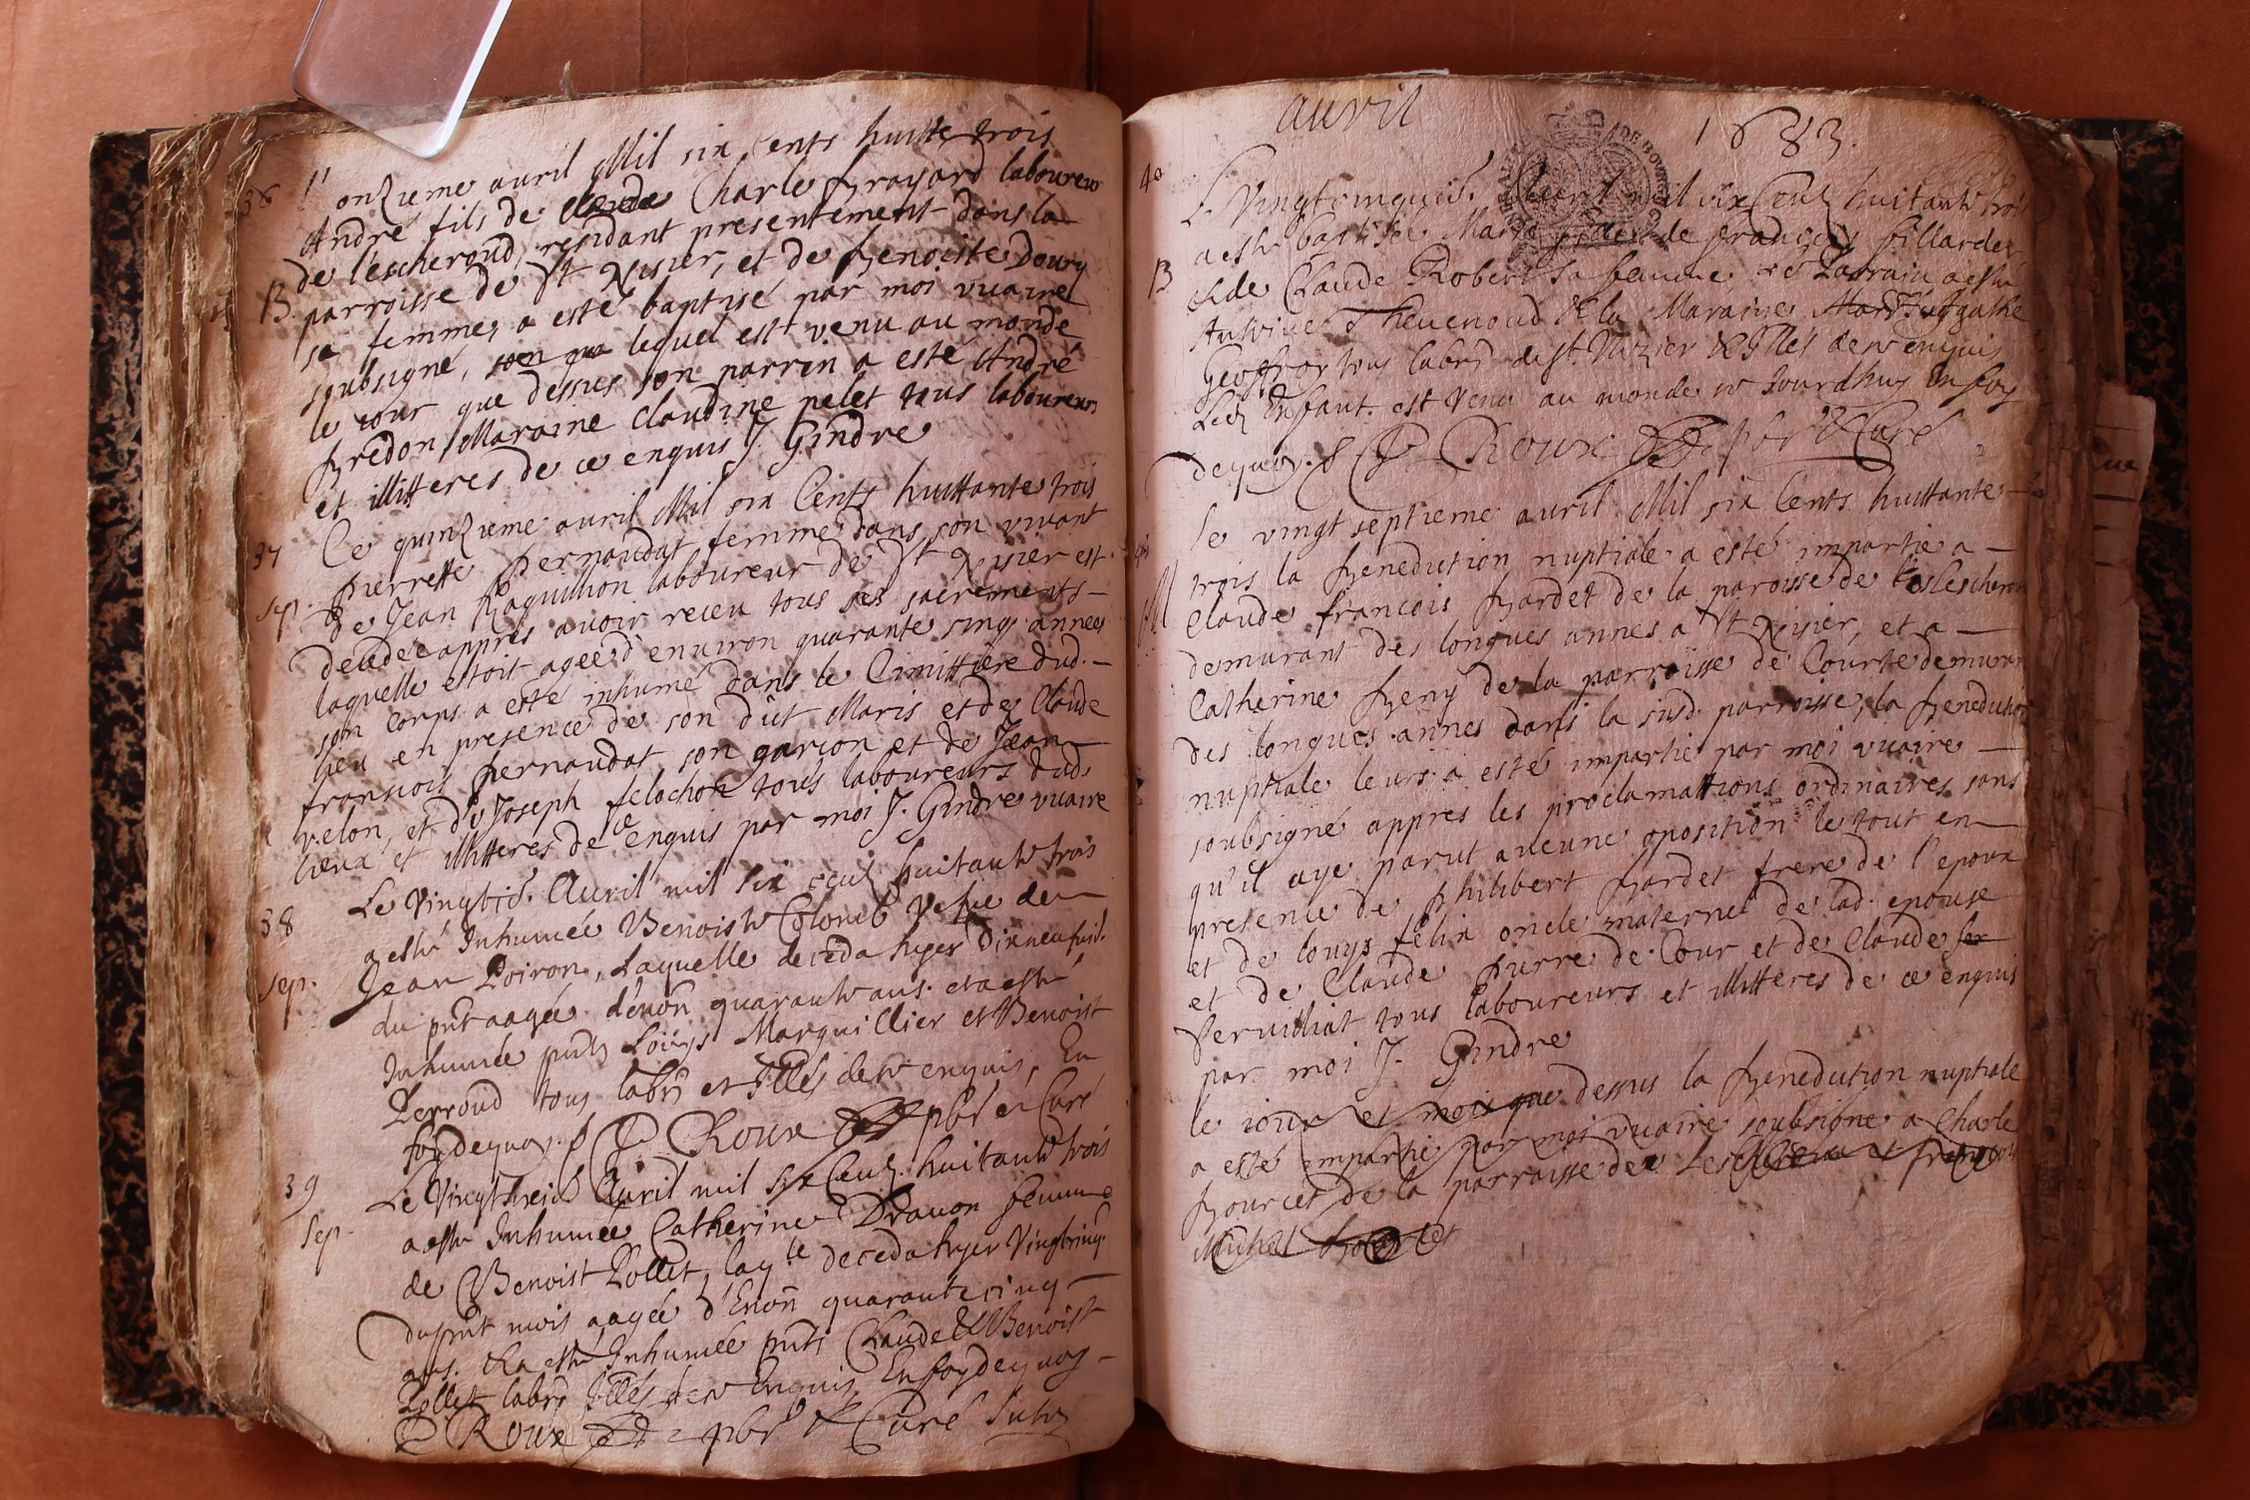 36
l'onzieme auril Mil six Cents huitte trois
André fils de Charle Brayard laboureur
de lescheroud, residant presentement dans la
B. parroisse de St Nisier, et de Benoiste Doury
sa femme, a esté baptisé par moi vicaire
soubsigné, lequel est venu au monde
le iour que dessus son parrin a esté André
Bredon, Maraine Claudine pelet tous laboureurs
et illitteres de ce enquis J. Gindre
37
Ce quinzieme auril Mil six Cents huittante trois
pierrette pernaudat femme dans son viuant
sep. de Jean Raquillion laboureur de St Nisier est
decedee appres auoir receu tous ses sacrements
laquelle estoit agée d'enuiron quarante cinq années
son corps a esté inhumé dans le Cimittiere dud.
lieu en presence de son dict Maris et de Claude
francois pernaudat son garcon et de Jean
velon, et de Joseph felochon tous laboureurs dud.
lieux et illitteres de ce enquis par moi J. Gindre vicaire
38
Le Vingtié. Auril mil six cent huitante trois
a esté Inhumée Benoiste Colomb Vefue de
sep. Jean Poiron, Laquelle deceda hyer
du pnt aagée d'enon quarante ans. et a esté
Inhumée pnts Loüys Marquillier et Benoist
Perroud tous labrs et Illés de ce enquis, En
foy de quoy. P Roux pbr et Curé
39
Le Vingt Auril mil six Cent huitante trois
Sep. a esté Inhumée Catherine Drauon femme
de Benoist Pollet, laqle deceda hyer Vingtcinq
du pnt mois aagée d'Enon quarante cinq
ans. & a esté Inhumée pnts Claude & Benoist
Pollet labrs Illés de ce Enquis, En foy de quoy
P Roux pbr & Curé
auril 1683.
40
Le Vingtcinquié. mil six Cent huitante trois
a esté baptisée Marie de françois fillardet
B & de Claude Robert sa femme Le Parrain a esté
Antoine Theuenoud & la Maraine Agathe
Geoffroy tous labrs de St Nizier & Illés de ce enquis
Led Enfant. est Venu au monde ce Jourdhuy En foy
de quoy. P Roux pbr & Curé
41
le vingt septieme auril Mil six Cents huittante
trois la Benediction nuptiale a esté impartie a
M Claude francois Bardet de la paroisse de Lescheroux
demurant des longues annes a St Nisier, et a
Catherine Beny de la parroisse de Courte demurant
des longues annes dans la susd. parroisse, la Benediction
nuptiale leurs a esté impartie par moi vicaire
soubsigné appres les proclamattions ordinaires sans
qu'il aye parut aucune oposition le tout en
presence de philibert Bardet frere de l'epoux
et de louys felix oncle maternel de lad. epouse
et de Claude pierre de Cour et de Claude
Seruilliat tous laboureurs et illitteres de ce enquis
par moi J. Gindre
le iour et mois que dessus la Benediction nuptiale
a esté impartie par moi vicaire soubsigné a Charle
Bourcet de la parroisse de Lescheroux et francoise
Michel